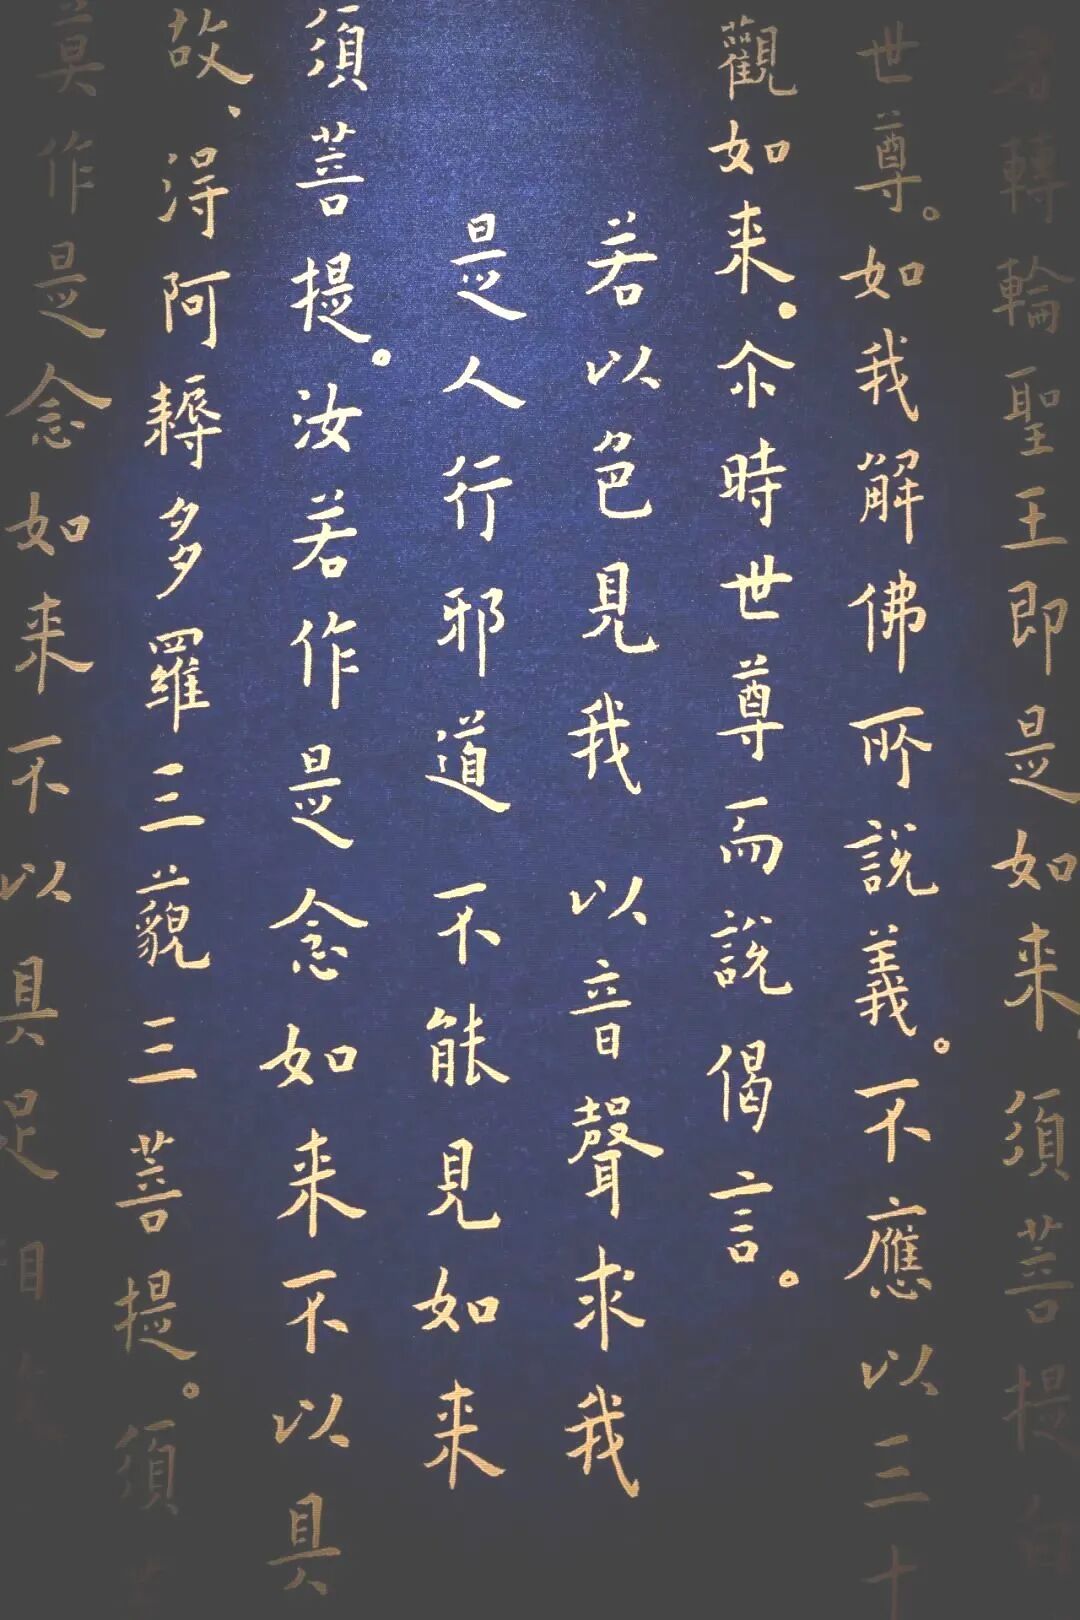 者轉輪聖王即是如来須菩提白
世尊。如我解佛所說義。不應以三十
觀如来。尒時世尊而說偈言。
若以色見我 以音聲求我
是人行邪道 不能見如来
須菩提。汝若作是念如来不以具
故、淂阿耨多羅三藐三菩提。須菩
莫作是念如来不以具足相